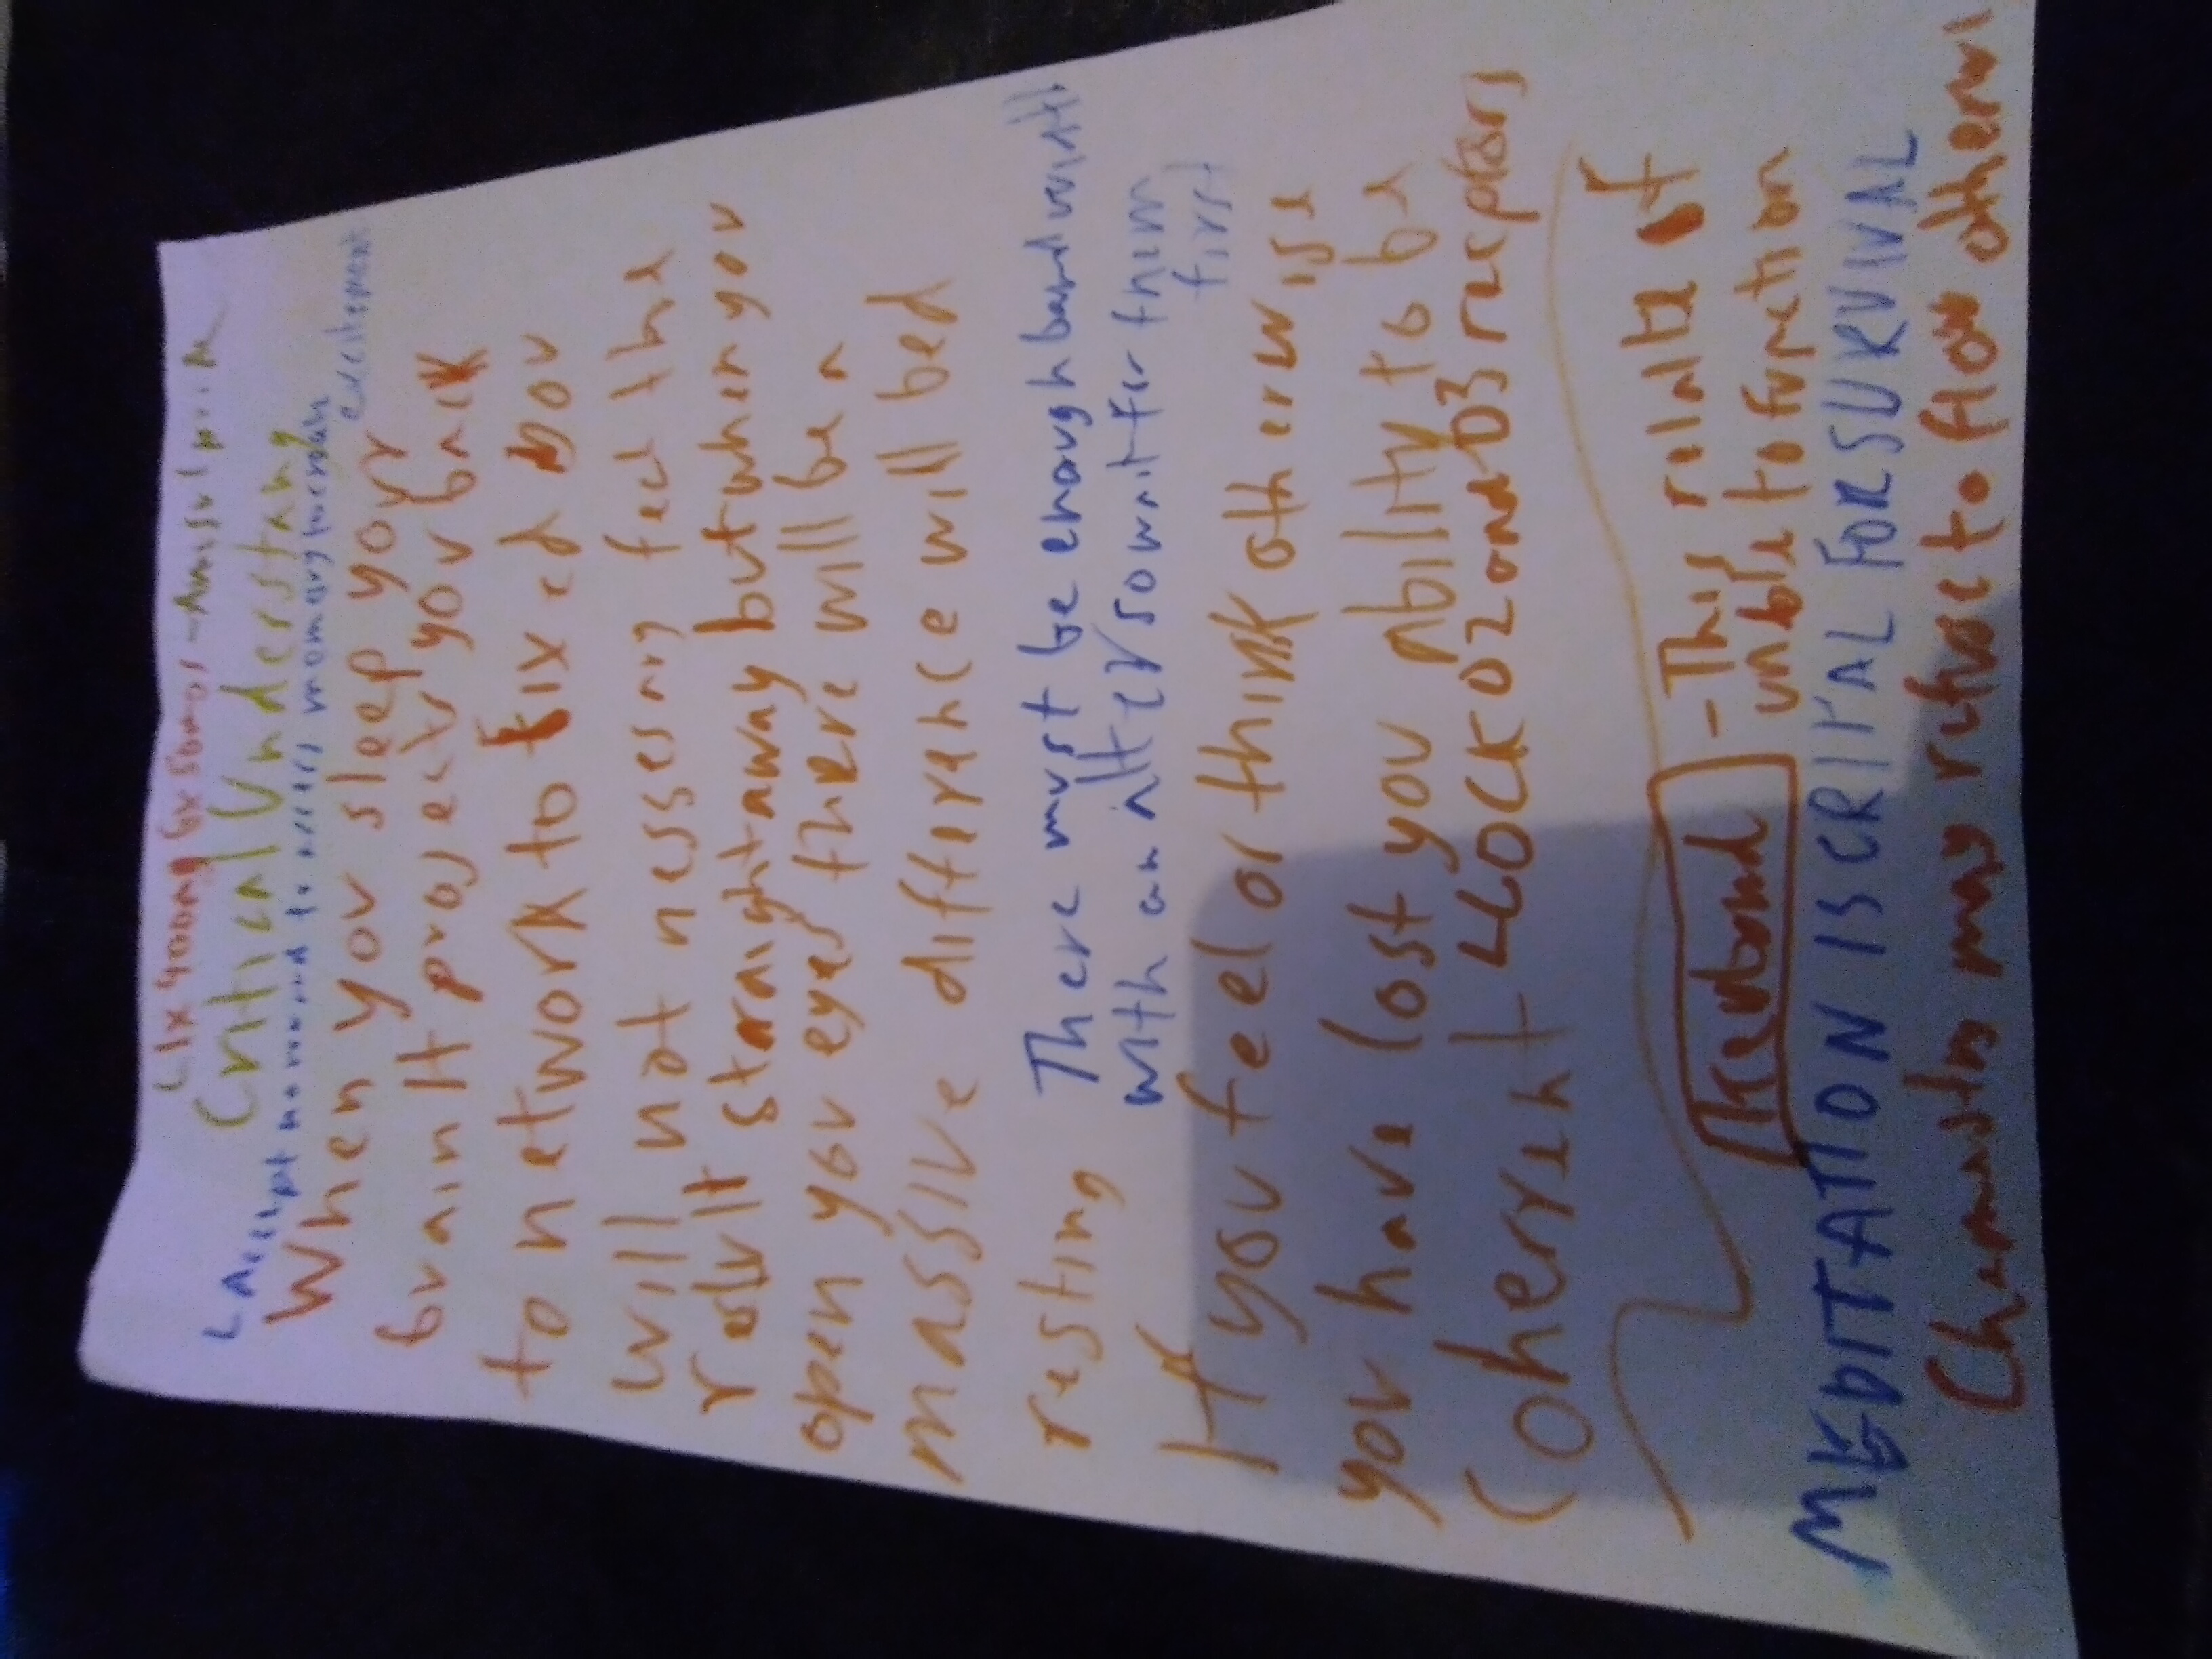 1x 400mg 6x 50mg - Amisulpri
Critical Understang
excitement
When you sleep your
brain It projects you back
to network to fixed you
will not nessesary feel the
result straightaway but when you
open you eyes there will be a
massive differance will bed
resting
There must be enough bandwidth
with an Alter so wait for them
first
If you feel or think otherwise
you have lost you ability to be
Coherent LOCK D2 and D3 receptors
- This relate of
unble to function
MEDITATION IS CRITAL FOR SURVIVAL
Chemistry may refuse to flow otherwi